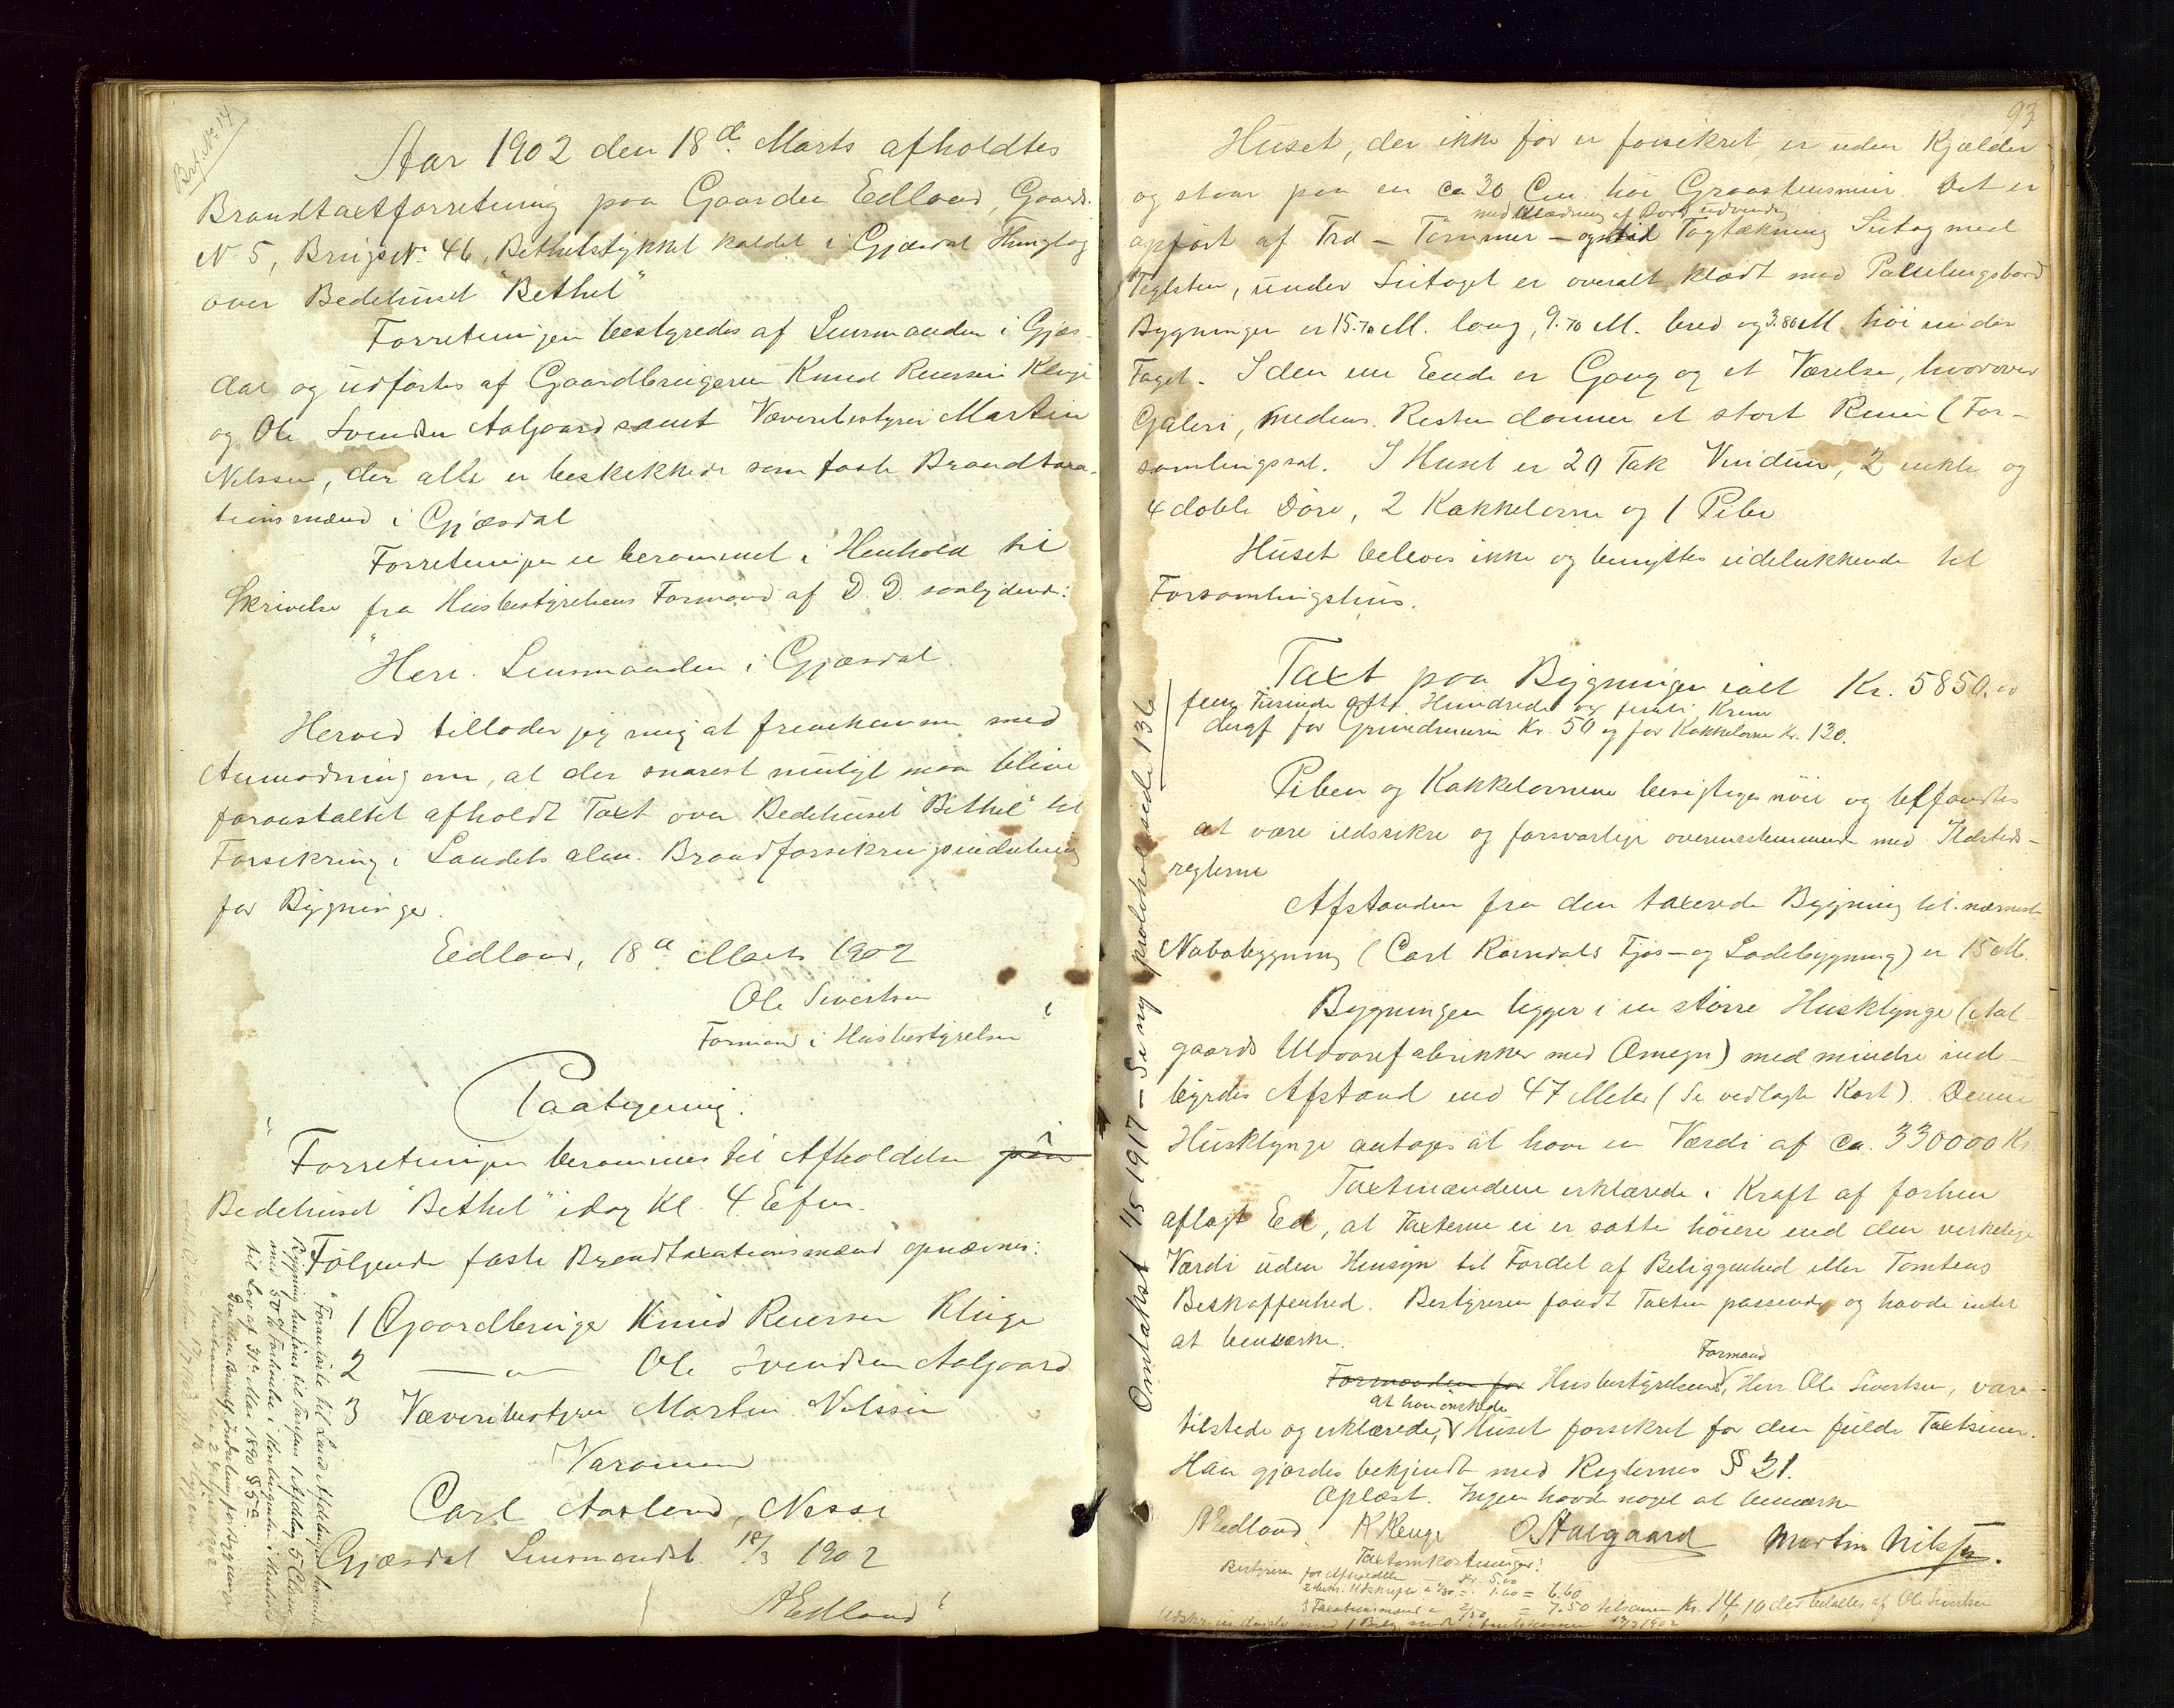 Brf. No 14
Aar 1902 den 18de Marts afholdtes
Brandtaxtforretning paa Gaarden Edland, Gaards
N 5, Brugs No 46, Bethelstykket kaldet i Gjæsdal Thinglag
over Bedehuset "Bethel"
Forretningen bestyredes af Lensmanden i Gjæs-
dal og udførtes af Gaardbrugerne Knud Reiersen Kluge
og Ole Svendsen Aalgaard samt Væveribestyrer Martin
Nilssen, der alle er beskikkede som faste Brandtaxa-
tionsmænd i Gjæsdal
Forretningen er berammet i Henhold til
Skrivelse fra Husbestyrelsens Formand af D. D. saalydende:
"Herr. Lensmanden i Gjæsdal
Herved tillader jeg mig at fremkomme med
Anmodning om, at der snarest muligt maa blive
foranstaltet afholdt Taxt over Bedehuset "Bethel" til
Forsikring i Landets alm. Brandforsikringsindretning
for Bygninger.
Edland, 18de Marts 1902
Ole Sivertsen
Formand i Husbestyrelsen"
Paategning.
"Forretningen berammes til Afholdelse paa i
Bedehuset "Bethel" idag Kl. 4 Efm.
Følgende faste Brandtaxationsmænd opnævnes:
1 Gaardbruger Knud Reiersen Kluge
2 — " — Ole Svendsen Aalgaard
3 Væveribestyrer Martin Nilssen
Varamænd
Carl Aasland, Nesse
Gjæsdal Lensmandsb. 18/3 1902
AEdland"
"Foranførte til Land Afdelingen hørende
Bygning henføres til Tarifens 1 Afdeling 5 Classe
med 50 % Forhøielse i Kontingenten i Henhold
til Lov af 31te Mai 1890 § 5 a
93
Huset, der ikke før er forsikret er uden Kjælder
og staar paa en ca 30 Cm. høi Graastensmur. Det er
med Klædning af Bord udvendig
opført af Træ – Tømmer – og med Tagtækning Sutag med
Teglsten, under Sutaget er overalt klædt med Panelingsbord
Bygningen er 15.70 M. lang, 9.70 M. bred og 3.80 M. høi under
Taget. I den ene Ende er Gang og et Værelse, hvorover
Galeri, medens Resten danner et stort Rum (For-
samlingssal. I Huset er 20 Fak Vinduer, 2 enkle og
4 doble Døre, 2 Kakkelovne og 1 Pibe
Huset beboes ikke og benyttes udelukkende til
Forsamlingshus.
Taxt paa Bygningen ialt Kr. 5850.00
fem Tusinde otte Hundrede og femti Kroner
deraf for Grundmuren Kr. 50 og for Kakkelovne Kr. 130.
Piben og Kakkelovnene besigtiges nøie og befandtes
at være ildssikre og forsvarlige overensstemmende med Ildsteds-
reglerne
Afstanden fra den taxerede Bygning til nærmeste
Nabobygning (Carl Ramsdals Fjøs- og Ladebygning) er 15 M.
Bygningen ligger i en større Husklynge (Aal-
gaards Uldvarefabrikker med Omegn) med mindre ind-
byrdes Afstand end 47 Meter (Se vedlagte Kart). Denne
Husklynge antages at have en Værdi af ca. 330000 Kr.
Taxtmændene erklærede i Kraft af forhen
aflagt Ed, at Taxterne ei er satte høiere end den virkelige
Værdi uden Hensyn til Fordel af Beliggenhed eller Tomtens
Beskaffenhed. Bestyreren fandt Taxten passende og havde intet
at bemærke.
Formand
Formanden for Husbestyrelsens, Herr Ole Sivertsen, var
at han ønskede
tilstede og erklærede, Huset forsikret for den fulde Taxtsum.
Han gjordes bekjendt med Reglernes § 21.
Oplæst. Ingen havde noget at bemærke
AEdland K Kluge O. Aalgaard Martin Nilssen.
Taxtomkostninger:
Bestyreren for Afholdelse Kr. 5.00
2 bekr. Udskrifter = 1.60 = 6.60
3 Taxationsmænd a 2/50 = 7.50 tilsammen Kr. 14,10 der betaltes af Ole Sivertsen
Omtakst 1/5 1917 – Se ny protokol side 136